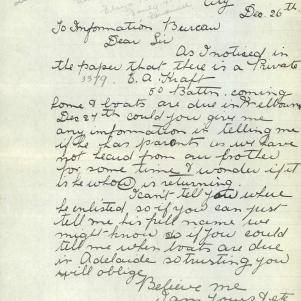 City
Dec. 26th
To Information Bureau
Dear Sir
As I noticed in
the paper that there is a Private
3379. E. A. Kraft
50 Battn. coming
home & boats are due in Melbourne
Dec 27th could you give me
any information in telling me
if he has parents as we have
not heard from our brother
for some time & wonder if it
is he who is returning.
I can't tell you where
he enlisted, so if you can just
tell me his full name we
might know so if you could
tell me when boats are due
in Adelaide so trusting you
will oblige
Believe me
I am Yours etc